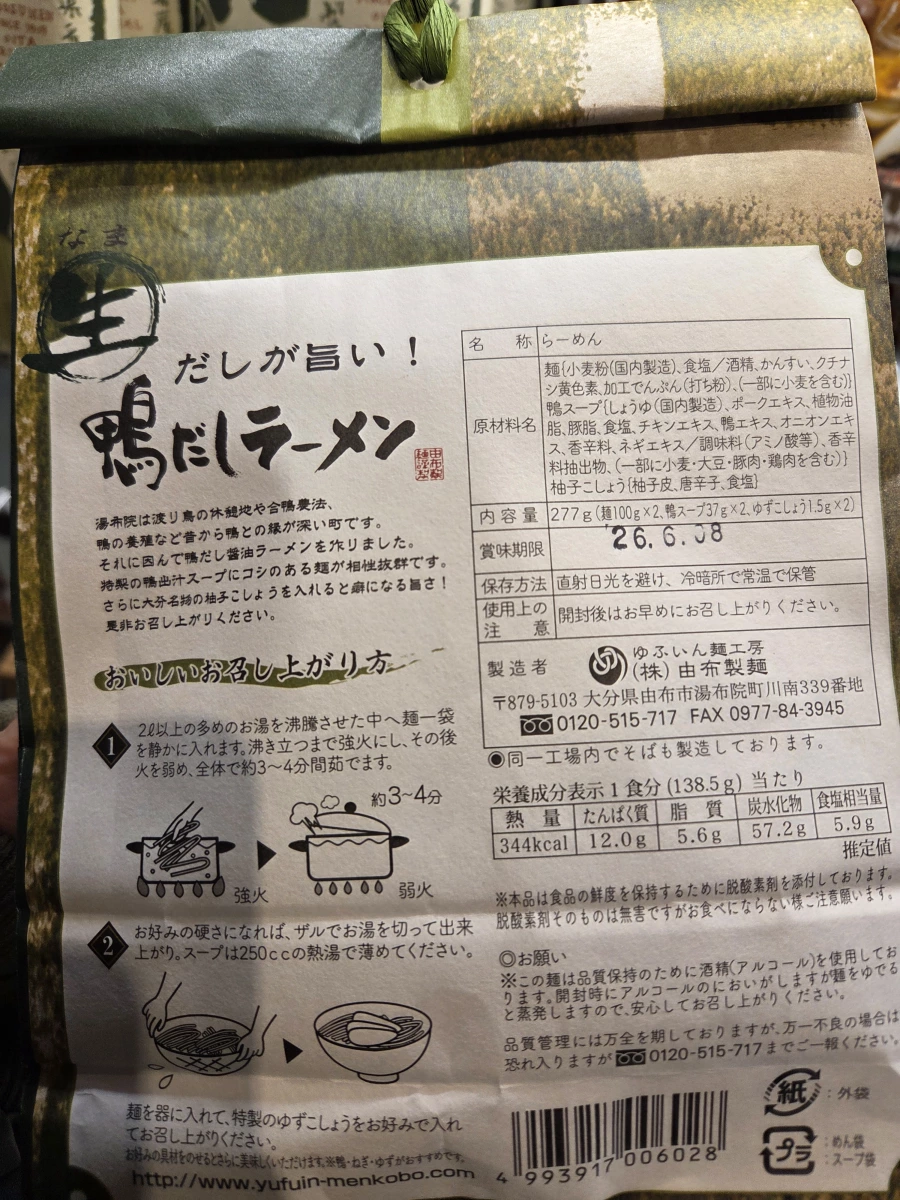 なま
生
だしが旨い！
鴨だしラーメン
湯布院は渡り鳥の休憩地や合鴨農法、
鴨の養殖など昔から鴨との縁が深い町です。
それに因んで鴨だし醤油ラーメンを作りました。
特製の鴨出汁スープにコシのある麺が相性抜群です。
さらに大分名物の柚子こしょうを入れると癖になる旨さ！
是非お召し上がりください。
おいしいお召し上がり方
1
2ℓ以上の多めのお湯を沸騰させた中へ麺一袋
を静かに入れます。沸き立つまで強火にし、その後
火を弱め、全体で約3〜4分間茹でます。
約3〜4分
強火
弱火
2
お好みの硬さになれば、ザルでお湯を切って出来
上がり。スープは250ccの熱湯で薄めてください。
麺を器に入れて、特製のゆずこしょうをお好みで入れ
てお召し上がりください。
お好みの具材をのせるとさらに美味しくいただけます。※鴨・ねぎ・ゆずがおすすめです。
http://www.yufuin-menkobo.com
名 称 らーめん
原材料名
麺{小麦粉(国内製造)、食塩／酒精、かんすい、クチナ
シ黄色素、加工でんぷん(打ち粉)、(一部に小麦を含む)}
鴨スープ{しょうゆ(国内製造)、ポークエキス、植物油
脂、豚脂、食塩、チキンエキス、鴨エキス、オニオンエキ
ス、香辛料、ネギエキス／調味料(アミノ酸等)、香辛
料抽出物、(一部に小麦・大豆・豚肉・鶏肉を含む)}
柚子こしょう{柚子皮、唐辛子、食塩}
内容量 277g(麺100g×2、鴨スープ37g×2、ゆずこしょう1.5g×2)
賞味期限 '26.6.08
保存方法 直射日光を避け、冷暗所で常温で保管
使用上の
注 意
開封後はお早めにお召し上がりください。
製造者
ゆふいん麺工房
(株)由布製麺
〒879-5103 大分県由布市湯布院町川南339番地
0120-515-717 FAX 0977-84-3945
◉同一工場内でそばも製造しております。
栄養成分表示1食分(138.5g)当たり
熱 量 たんぱく質 脂 質 炭水化物 食塩相当量
344kcal 12.0g 5.6g 57.2g 5.9g
推定値
※本品は食品の鮮度を保持するために脱酸素剤を添付しております。
脱酸素剤そのものは無害ですがお食べにならない様ご注意願います。
◎お願い
※この麺は品質保持のために酒精(アルコール)を使用してお
ります。開封時にアルコールのにおいがしますが麺をゆでる
と蒸発しますので、安心してお召し上がりください。
品質管理には万全を期しておりますが、万一不良の場合は
恐れ入りますが 0120-515-717までご一報ください。
4 993917 006028
紙 ：外袋
プラ ：めん袋
：スープ袋